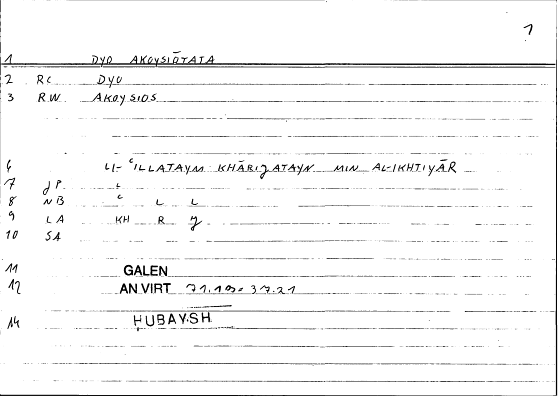 1
1 DYO AKOYSIŌTATA
2 RC DYO
3 RW AKOYSIOS
6 LI-ʿILLATAYN KHĀRIJATAYN MIN AL-IKHTIYĀR
7 JP L
8 NB ʿ L L
9 LA KH R J
10 SA
11 GALEN
12 AN VIRT 71.19 = 37.21
14 ḤUBAYSH